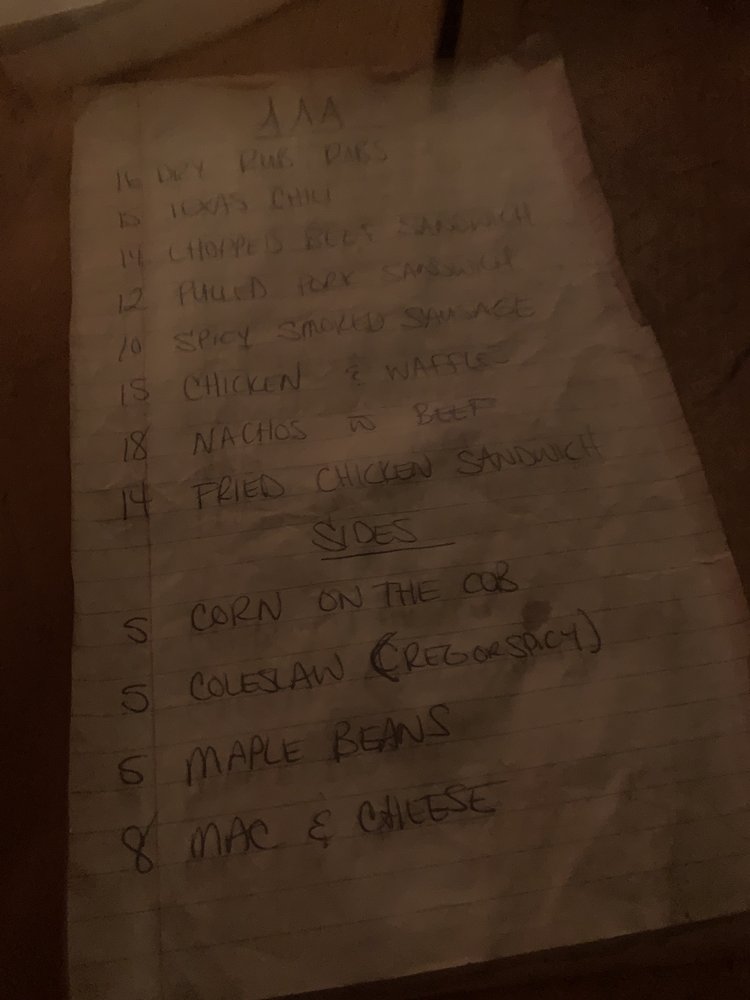 AAA
16 DRY RUB RIBS
15 TEXAS CHILI
14 CHOPPED BEEF SANDWICH
12 PULLED PORK SANDWICH
10 SPICY SMOKED SAUSAGE
15 CHICKEN & WAFFLE
18 NACHOS W BEEF
14 FRIED CHICKEN SANDWICH
SIDES
5 CORN ON THE COB
5 COLESLAW (REG OR SPICY)
5 MAPLE BEANS
8 MAC & CHEESE